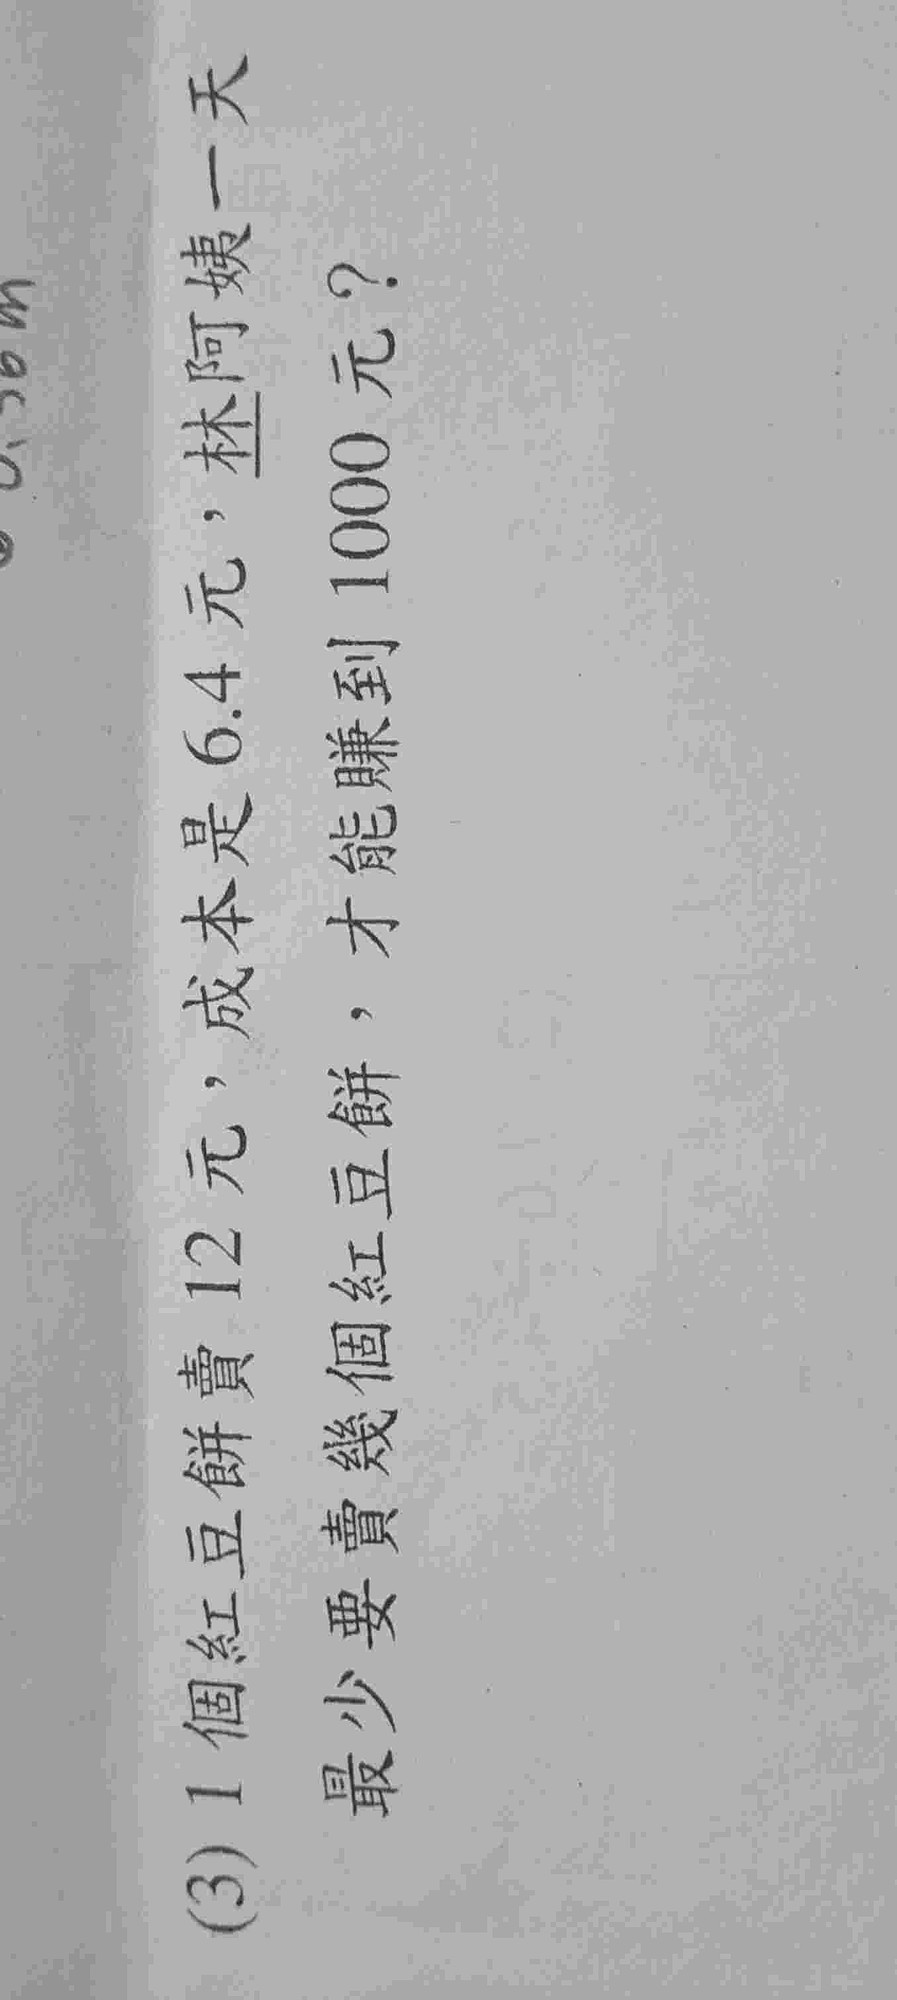 (3) 1 個紅豆餅賣 12 元，成本是 6.4 元，林阿姨一天
最少要賣幾個紅豆餅，才能賺到 1000 元？